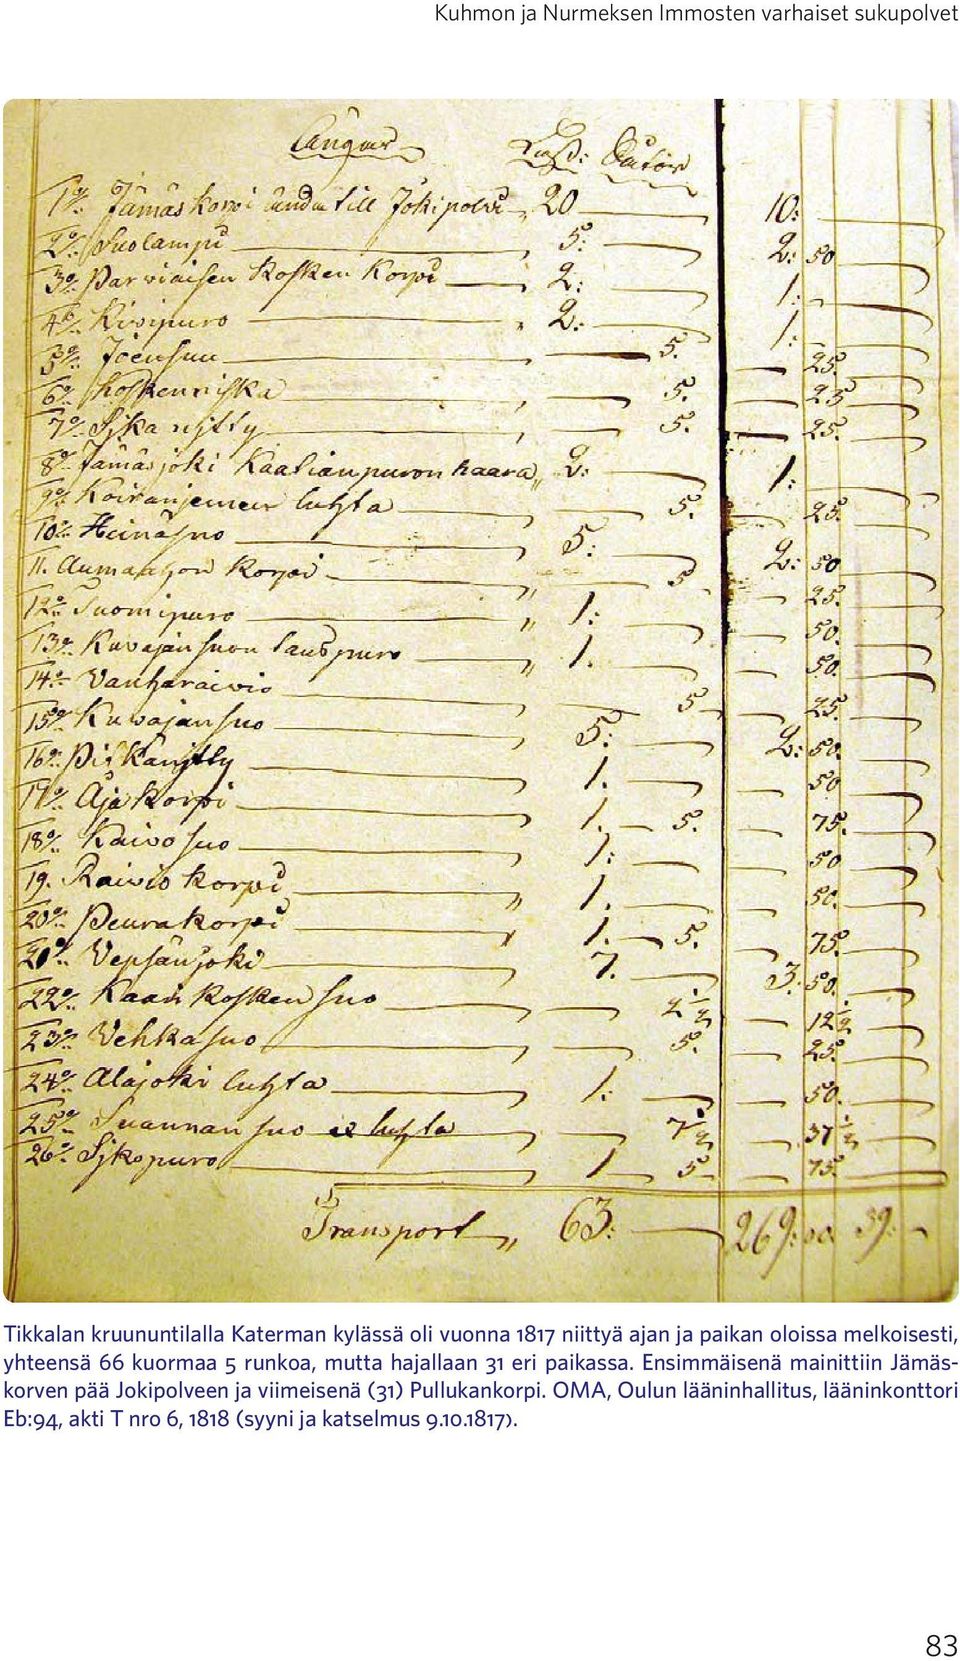 Kuhmon ja Nurmeksen Immosten varhaiset sukupolvet
Ängar
1o/. Jämäs korpi ända till Jokipolvi 20 10:
2o/. Suolampi 5: 2: 50
3o/. Parviaisen kosken korpi 2: 1:
4o/. Kivipuro 2: 1:
5o/. Joensuu 5. 25.
6o/. Koskenniska 5. 25
7o/. Sjka nijtty 5. 25.
8o/. Jämäs joki Kaatianpuron haara 2: 1:
9o/. Koiranjemen luhta 5. 25.
10o/. Heinäsuo 5: 2: 50
11. korpi 5 25.
12o/. Suomipuro 1: 50.
13o/. Kuvajan suon puro 1. 50.
14o/. Vanharaivio 5 25.
15o/. Kuvajansuo 5: 2: 50.
16o/. Pitkänjtty 1. 50
17o/. Äjä korpi 1. 5. 75.
18o/. Kaivo suo 1: 50
19. Raivio korpi 1. 50.
20o/. Peura korpi 1. 5. 75.
21o/. Vepsän joki 7. 3: 50.
22o/. Kaan kosken suo 2 1/2 12 1/2
23o/. Vehkasuo 5. 25.
24o/. Alajoki luhta 1: 50.
25o/. Suannan suo luhta 7 1/2 37 1/2
26o/. Sjkopuro 1 5 75.
Transport 63:
Tikkalan kruununtilalla Katerman kylässä oli vuonna 1817 niittyä ajan ja paikan oloissa melkoisesti,
yhteensä 66 kuormaa 5 runkoa, mutta hajallaan 31 eri paikassa. Ensimmäisenä mainittiin Jämäs-
korven pää Jokipolveen ja viimeisenä (31) Pullukankorpi. OMA, Oulun lääninhallitus, lääninkonttori
Eb:94, akti T nro 6, 1818 (syyni ja katselmus 9.10.1817).
83